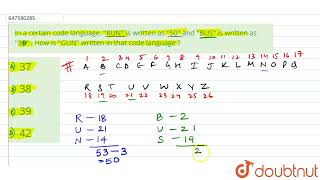 647580285
In a certain code language, "RUN" is written as "50" and "BUS" is written as
"39". How is "GUN" written in that code language ?
1 2 3 4 5 6 7 8 9 10 11 12 13 14 15 16 17
# A B C D E F G H I J K L M N O P Q
A) 37
R S T U V W X Y Z
18 19 20 21 22 23 24 25 26
B) 38
C) 39
D) 42
R - 18 B - 2
U - 21 U - 21
N - 14 S - 19
53 - 3 2
= 50
doubtnut